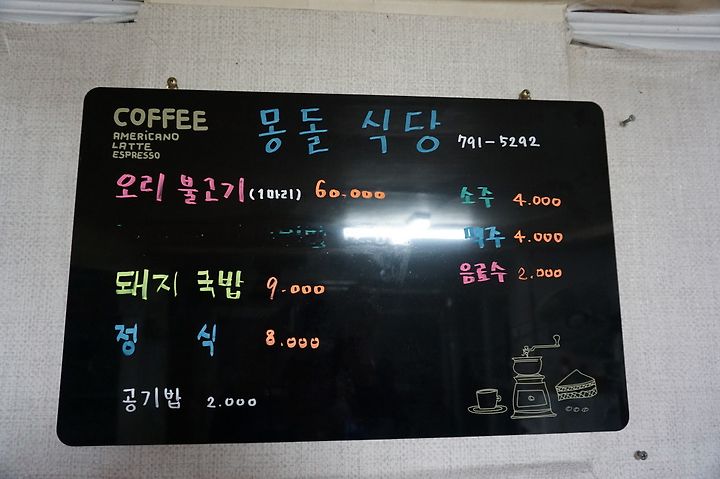 COFFEE
AMERICANO
LATTE
ESPRESSO
몽돌 식당 791-5292
오리 불고기 (1마리) 60.000
돼지 국밥 9.000
정 식 8.000
공기밥 2.000
소주 4.000
맥주 4.000
음료수 2.000